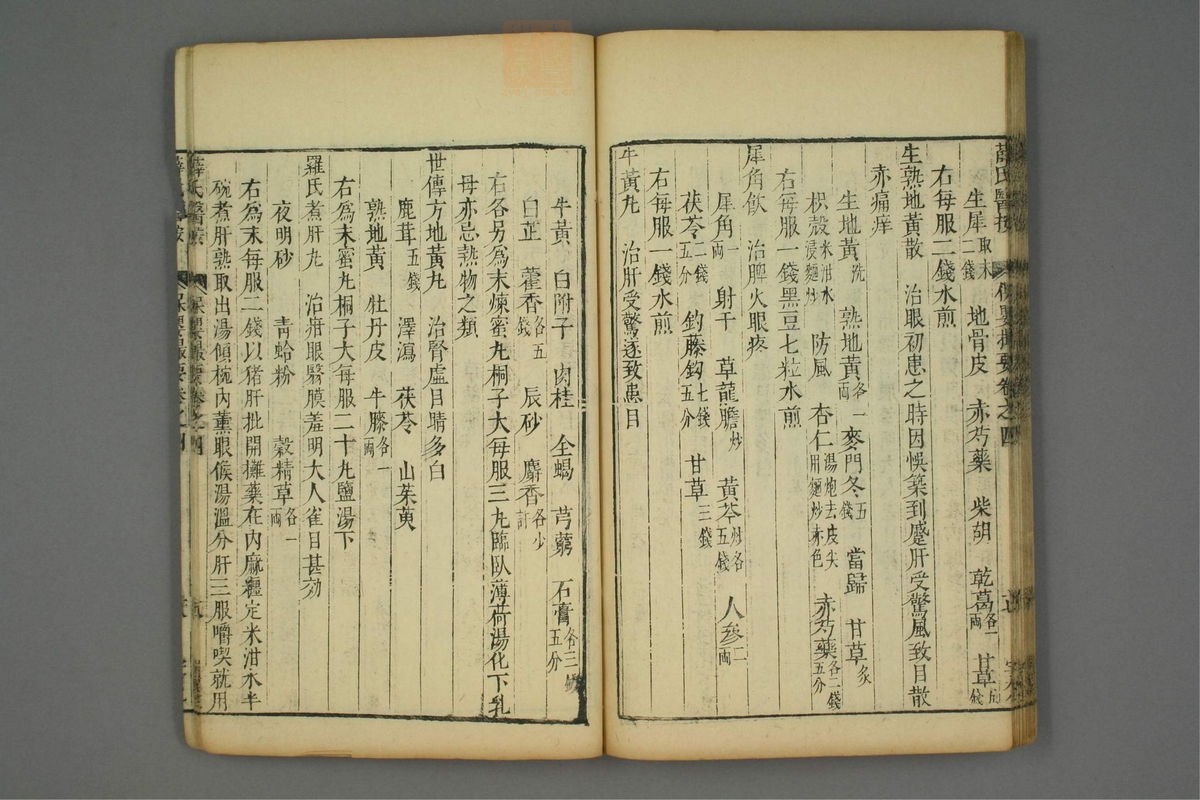 薛氏醫按 保嬰撮要卷之四
生犀取末二錢 地骨皮 赤芍藥 柴胡 乾葛各一兩 甘草
右每服二錢水煎
生熟地黃散 治眼初患之時因悞築到蹙肝受驚風致目散
赤痛痒
生地黃洗 熟地黃各一兩 麥門冬五錢 當歸 甘草炙
枳殼米泔水浸麵炒 防風 杏仁湯炮去皮尖用麵炒赤色 赤芍藥各二錢五分
右每服一錢黑豆七粒水煎
犀角飲 治脾火眼疼
犀角一兩 射干 草龍膽炒 黃芩炒各五錢 人參二兩
茯苓二錢五分 鈎藤鈎七錢五分 甘草三錢
右每服一錢水煎
牛黃丸 治肝受驚遂致患目
牛黃 白附子 肉桂 全蝎 芎藭 石膏各三錢五分
白芷 藿香各五錢 辰砂 麝香各少許
右各另為末煉蜜丸桐子大每服三丸臨臥薄荷湯化下乳
母亦忌熱物之類
世傳方地黃丸 治腎虛目睛多白
鹿茸五錢 澤瀉 茯苓 山茱萸
熟地黃 牡丹皮 牛膝各一兩
右為末蜜丸桐子大每服二十丸鹽湯下
羅氏煮肝丸 治疳眼翳膜羞明大人雀目甚効
夜明砂 靑蛤粉 穀精草各一兩
右為末每服二錢以猪肝批開攤藥在內麻纏定米泔水半
碗煮肝熟取出湯傾椀內薰眼候湯溫分肝三服嚼喫就用
薛氏醫按 保嬰撮要卷之四